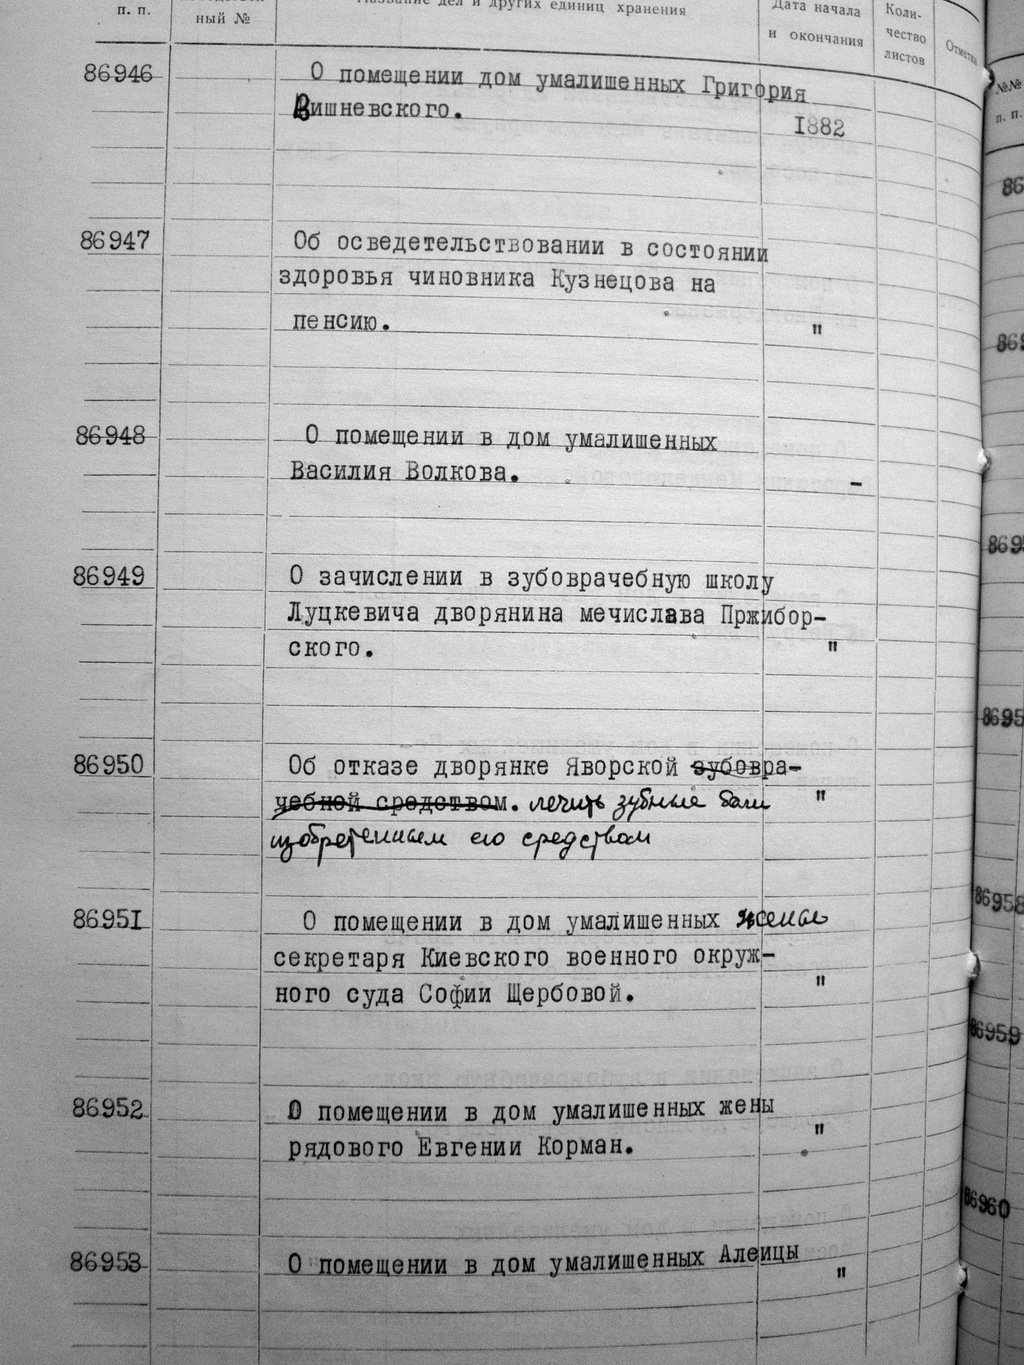 п. п.
ный №
Название дел и других единиц хранения
Дата начала
и окончания
Коли-
чество
листов
Отметки
86946
О помещении дом умалишенных Григория
Вишневского.
1882
86947
Об осведетельствовании в состоянии
здоровья чиновника Кузнецова на
пенсию.
"
86948
О помещении в дом умалишенных
Василия Волкова.
-
86949
О зачислении в зубоврачебную школу
Луцкевича дворянина мечислава Пржибор-
ского.
"
86950
Об отказе дворянке Яворской зубовра-
чебной средством. лечить зубные боли
"
изобретенным ею средством
86951
О помещении в дом умалишенных жены
секретаря Киевского военного окруж-
ного суда Софии Щербовой.
"
86952
О помещении в дом умалишенных жены
рядового Евгении Корман.
"
86953
О помещении в дом умалишенных Алеицы
"
№№
п. п.
86
869
8695
8695
86958
86959
86960